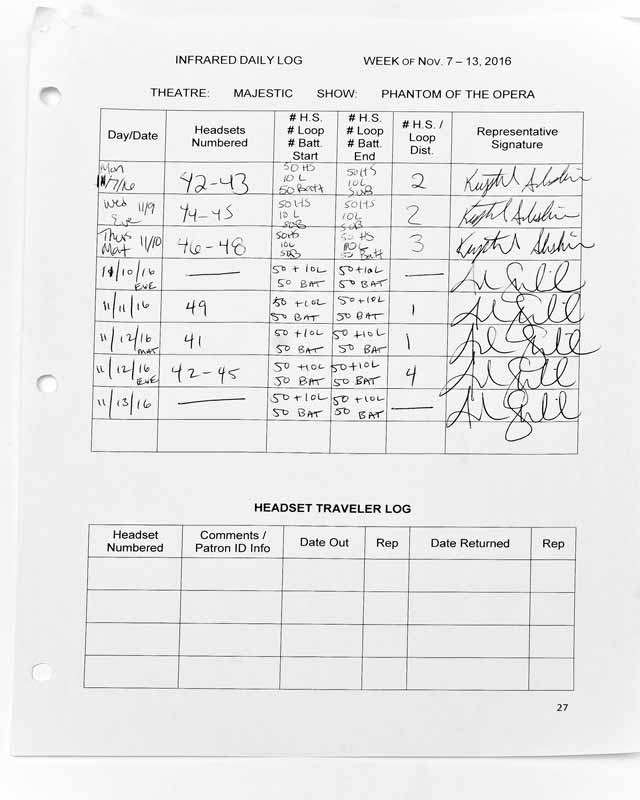 INFRARED DAILY LOG WEEK OF NOV. 7 – 13, 2016
THEATRE: MAJESTIC SHOW: PHANTOM OF THE OPERA
Day/Date Headsets Numbered # H.S. # Loop # Batt. Start # H.S. # Loop # Batt. End # H.S. / Loop Dist. Representative Signature
Mon 11/7/16 42-43 50 HS 10 L 50 Batt 50 HS 10L 50B 2
Wed 11/9 Eve 44-45 50 HS 10 L 50B 50 HS 10L 50B 2
Thurs Mat 11/10 46-48 50HS 10L 50B 50 HS 10L 50 Batt 3
11/10/16 EVE — 50 + 10L 50 BAT 50 + 10L 50 BAT —
11/11/16 49 50 + 10L 50 BAT 50 + 10L 50 BAT 1
11/12/16 MAT 41 50 + 10L 50 BAT 50 + 10L 50 BAT 1
11/12/16 EVE 42-45 50 + 10L 50 BAT 50 + 10L 50 BAT 4
11/13/16 — 50 + 10L 50 BAT 50 + 10L 50 BAT —
HEADSET TRAVELER LOG
Headset Numbered Comments / Patron ID Info Date Out Rep Date Returned Rep
27